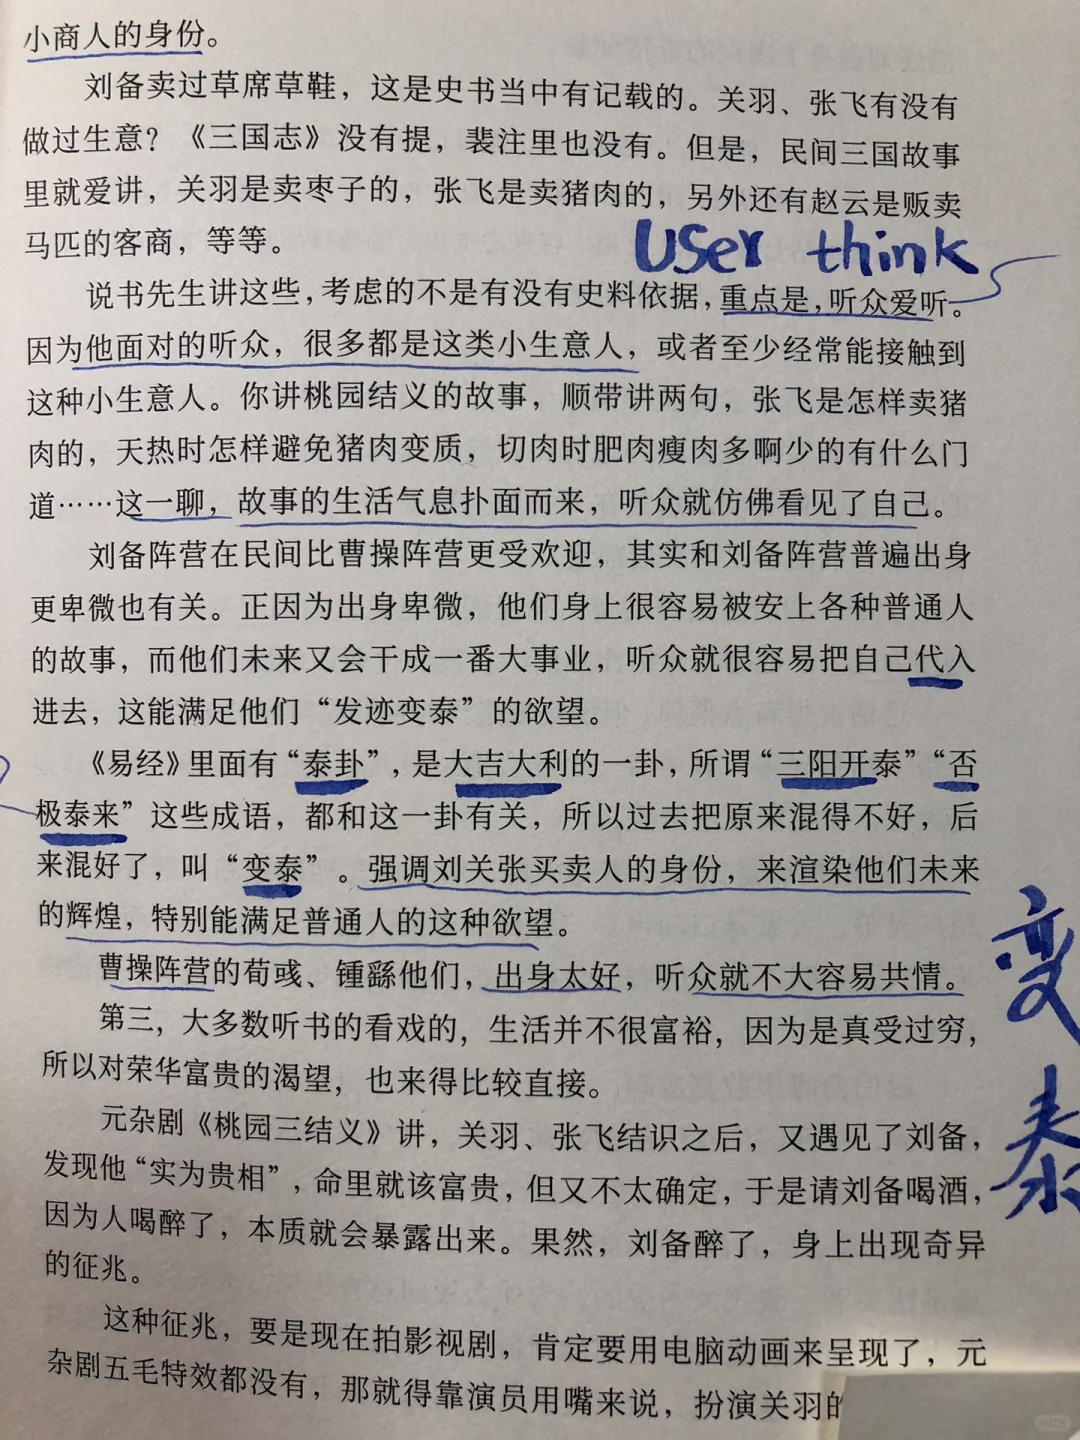 小商人的身份。
刘备卖过草席草鞋，这是史书当中有记载的。关羽、张飞有没有
做过生意？《三国志》没有提，裴注里也没有。但是，民间三国故事
里就爱讲，关羽是卖枣子的，张飞是卖猪肉的，另外还有赵云是贩卖
马匹的客商，等等。
User think
说书先生讲这些，考虑的不是有没有史料依据，重点是，听众爱听。
因为他面对的听众，很多都是这类小生意人，或者至少经常能接触到
这种小生意人。你讲桃园结义的故事，顺带讲两句，张飞是怎样卖猪
肉的，天热时怎样避免猪肉变质，切肉时肥肉瘦肉多啊少的有什么门
道……这一聊，故事的生活气息扑面而来，听众就仿佛看见了自己。
刘备阵营在民间比曹操阵营更受欢迎，其实和刘备阵营普遍出身
更卑微也有关。正因为出身卑微，他们身上很容易被安上各种普通人
的故事，而他们未来又会干成一番大事业，听众就很容易把自己代入
进去，这能满足他们“发迹变泰”的欲望。
《易经》里面有“泰卦”，是大吉大利的一卦，所谓“三阳开泰”“否
极泰来”这些成语，都和这一卦有关，所以过去把原来混得不好，后
来混好了，叫“变泰”。强调刘关张买卖人的身份，来渲染他们未来
的辉煌，特别能满足普通人的这种欲望。
变泰
曹操阵营的荀彧、锺繇他们，出身太好，听众就不大容易共情。
第三，大多数听书的看戏的，生活并不很富裕，因为是真受过穷，
所以对荣华富贵的渴望，也来得比较直接。
元杂剧《桃园三结义》讲，关羽、张飞结识之后，又遇见了刘备，
发现他“实为贵相”，命里就该富贵，但又不太确定，于是请刘备喝酒，
因为人喝醉了，本质就会暴露出来。果然，刘备醉了，身上出现奇异
的征兆。
这种征兆，要是现在拍影视剧，肯定要用电脑动画来呈现了，元
杂剧五毛特效都没有，那就得靠演员用嘴来说，扮演关羽的
小红书